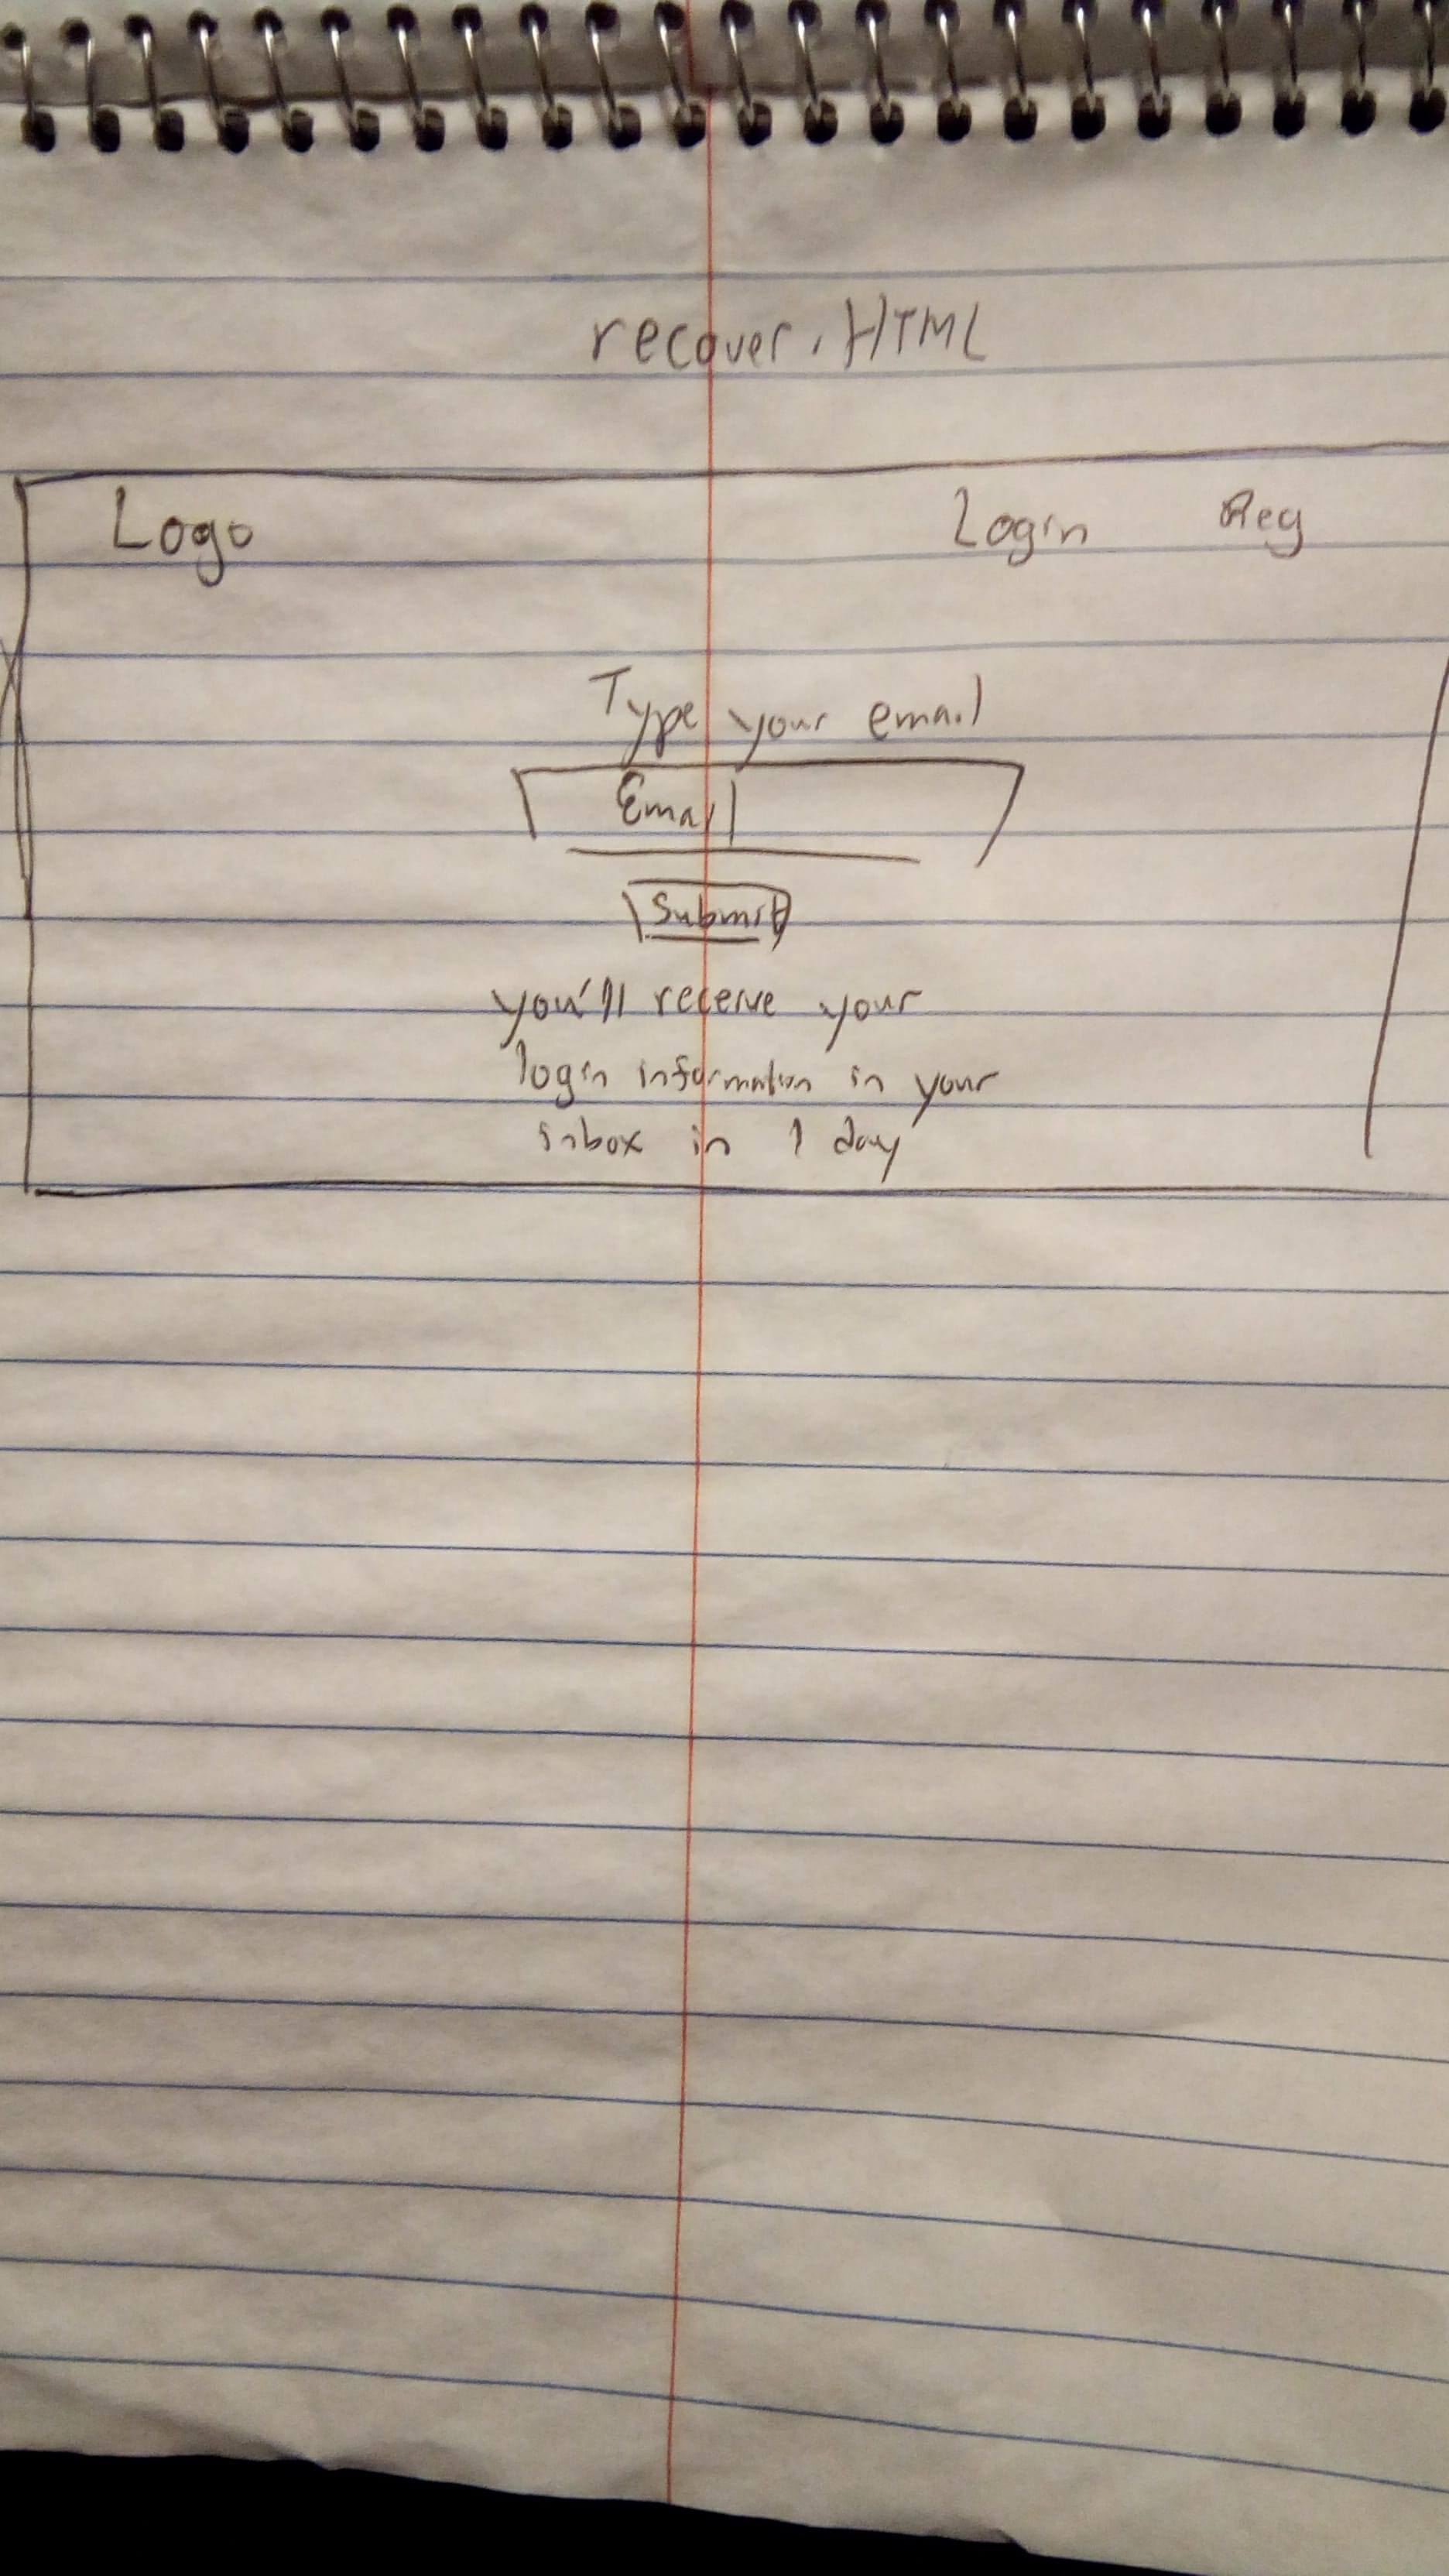 recover.HTML
Logo Login Reg
Type your email
Email
Submit
you'll receive your
login information in your
inbox in 1 day